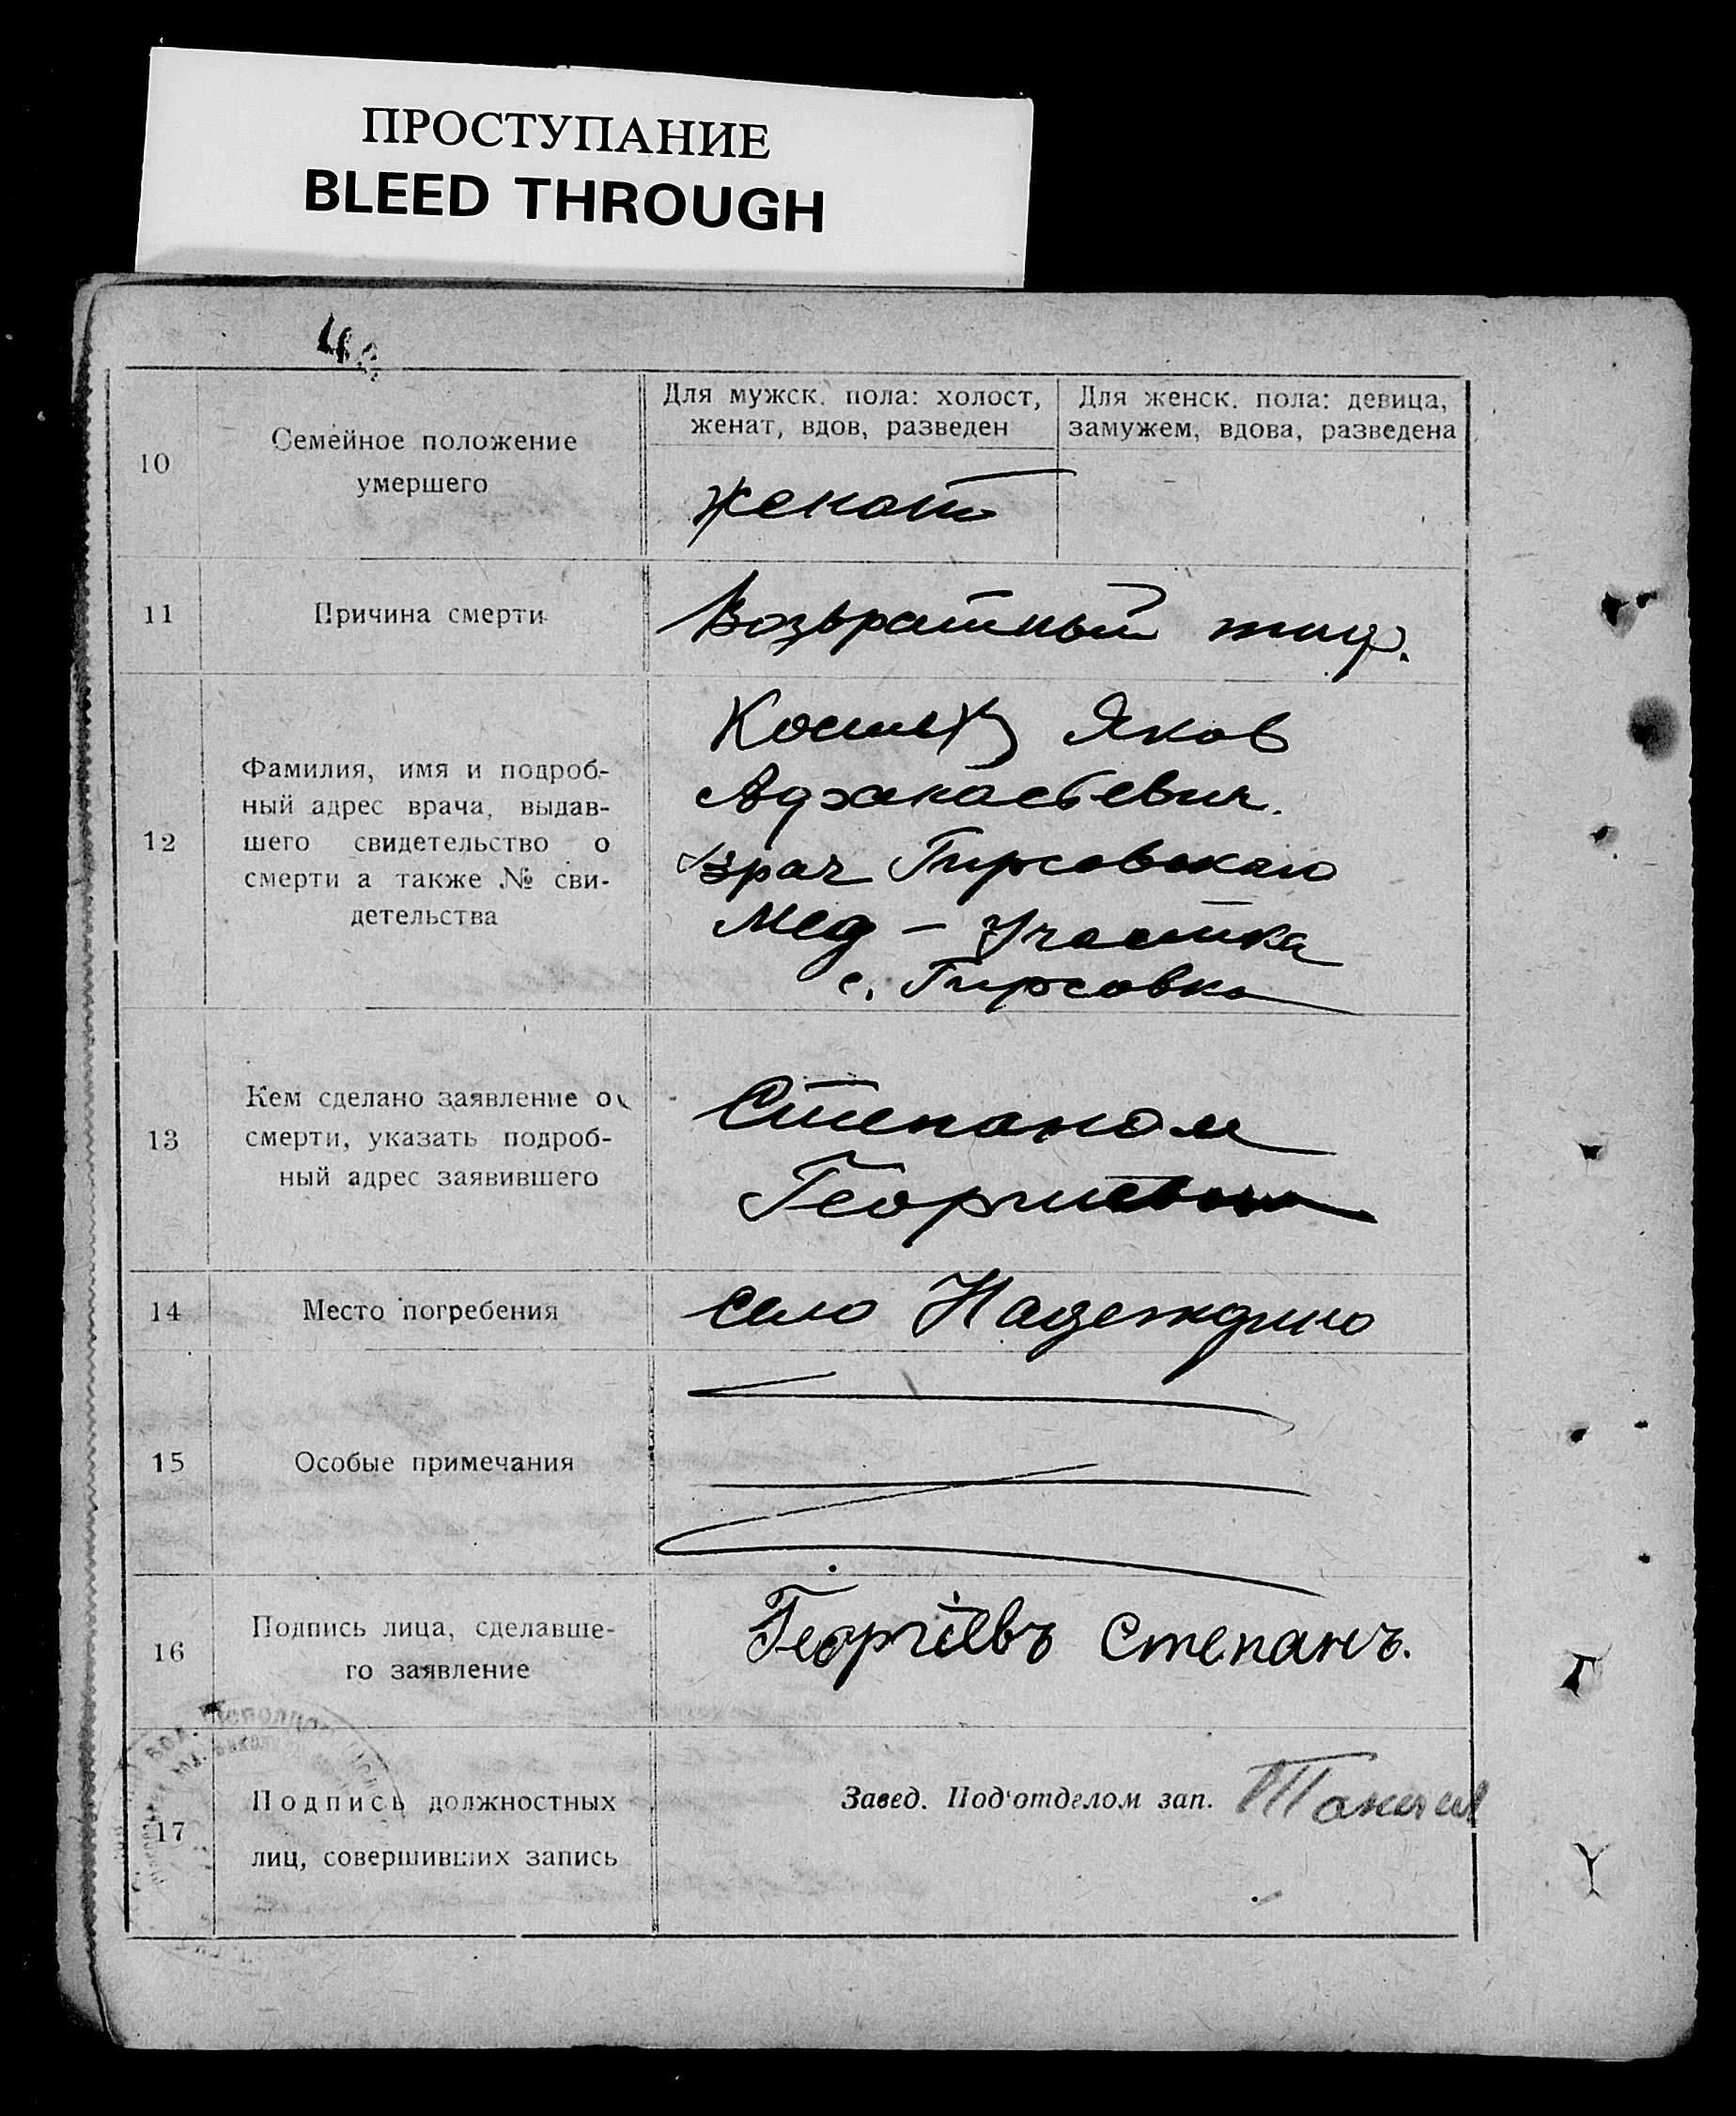 ПРОСТУПАНИЕ
BLEED THROUGH
10
Семейное положение
умершего
Для мужск. пола: холост,
женат, вдов, разведен
Для женск. пола: девица,
замужем, вдова, разведена
женат
11
Причина смерти
Возвратный тиф.
12
Фамилия, имя и подроб-
ный адрес врача, выдав-
шего свидетельство о
смерти а также № сви-
детельства
Яков
Афанасьевич.
Врач Гирсовского
Мед – Участка
с. Гирсовка
13
Кем сделано заявление о
смерти, указать подроб-
ный адрес заявившего
Степаном
Георгиевым
14
Место погребения
село Надеждино
15
Особые примечания
16
Подпись лица, сделавше-
го заявление
Георгіевъ Степанъ.
17
Подпись должностных
лиц, совершивших запись
Завед. Под‘отделом зап.